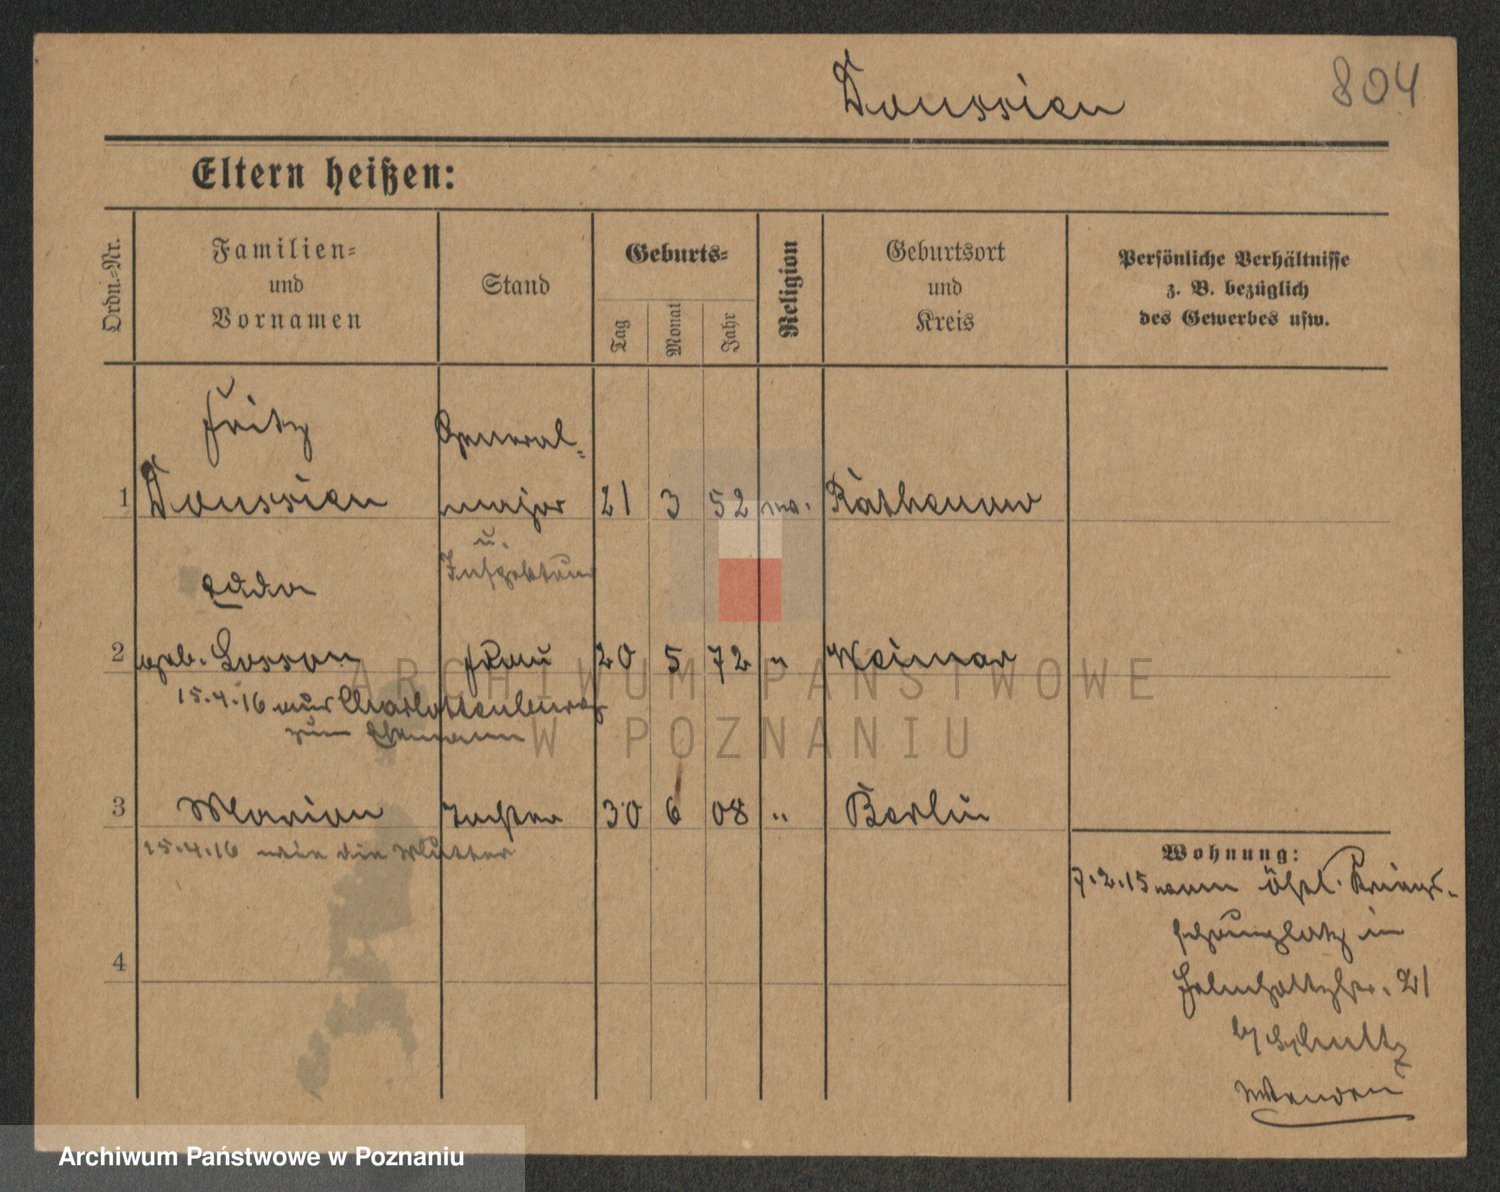 Doussien
804
Eltern heißen:
Ordn.-Nr.
Familien-
und
Vornamen
Stand
Geburts-
Tag
Monat
Jahr
Religion
Geburtsort
und
Kreis
Persönliche Verhältnisse
z. B. bezüglich
des Gewerbes usw.
Fritz
General-
1 Doussien major 21 3 52 Rathenow
u.
2 geb. Frau 20 5 72 " Weimar
15.4.16 nur Charlottenburg
zum Ehemann
3 Marian Tochter 30 6 08 " Berlin
15.4.16 wie die Mutter
4
Wohnung:
7.2.15 vom östl. Kriegs-
schauplatz in
Helmholtzstr. 21
b/ Schultz
ARCHIWUM PAŃSTWOWE
W POZNANIU
Archiwum Państwowe w Poznaniu